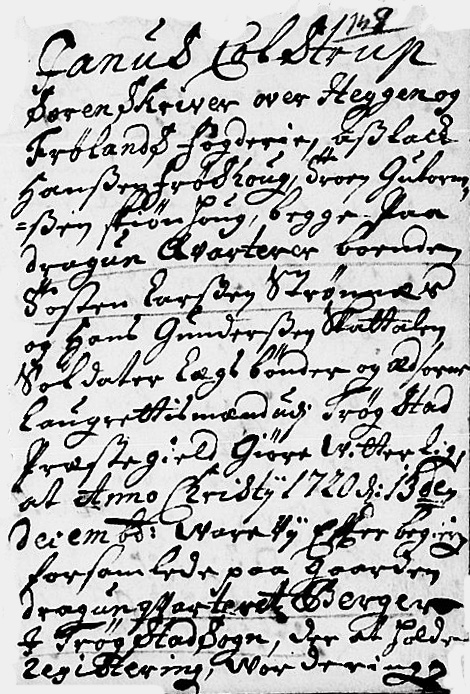 1748
Janus Colstrup
Sorenskriver over Heggen og
Frølands fogderie, Aslack
Hanßen Frøshoug, Sven Gutorm
=ßen Skiønhoug, begge paa
dragun Qvarterer boenden
Tosten Larßen Strønnes
og Hans Gunderßen Skattalen
Soldater Lægs bønder og Edsorne
Laugrettismænd udi Trøgstad
Præstegield Giøre Witterligt,
at Anno Christÿ 1720 d: 13den
Decembr: Ware Vÿ Efter begiering
forsamlede paa Gaarden
dragunqvarteret Berger
I Trøgstad Sogn, der at holde
Registering, Worderinge